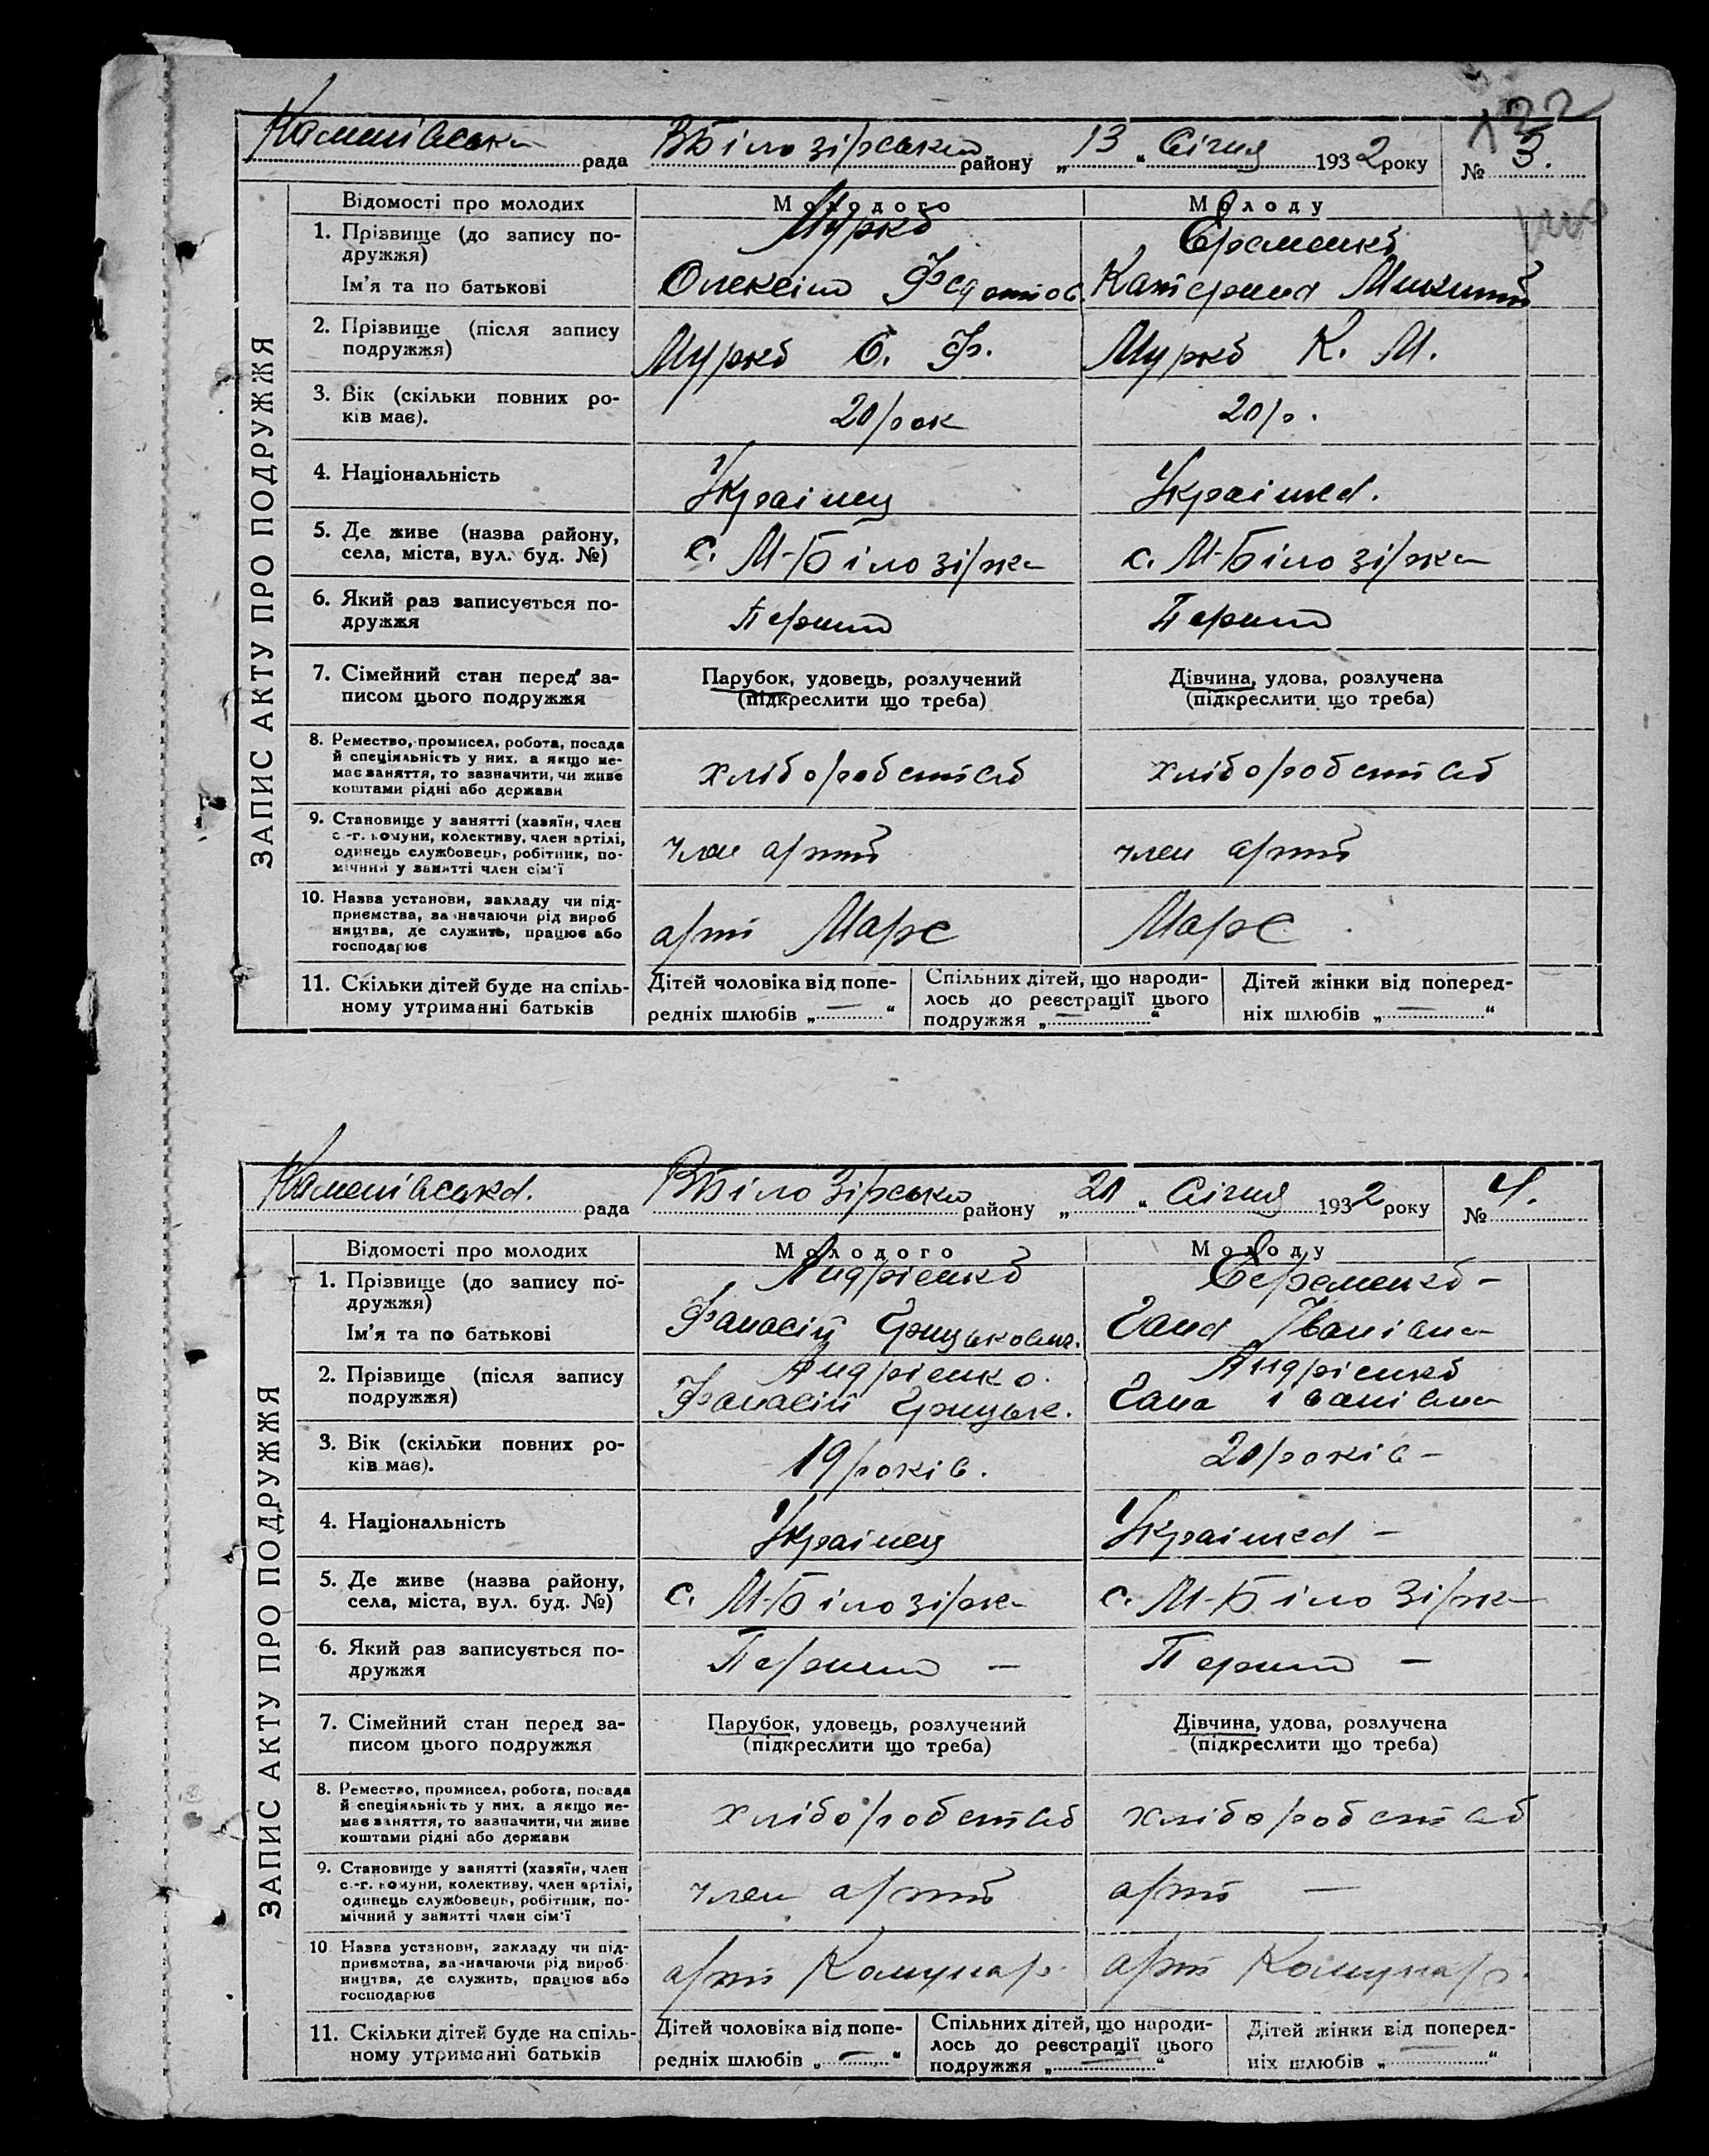 122
рада ВБілозірськ району „13“ Січня 1932 року № 3.
Відомості про молодих Молодого Молоду
1. Прізвище (до запису по-
дружжя) Мурко Єременко
Ім'я та по батькові Олексій Федотов. Катерина Микит
2. Прізвище (після запису
подружжя) Мурко О. Ф. Мурко К. М.
3. Вік (скільки повних ро-
ків має). 20 рок 20 р.
4. Національність Українец Українка.
5. Де живе (назва району,
села, міста, вул. буд. №) с. М-Білозірка с. М-Білозірка
6. Який раз записується по-
дружжя Перший Перший
7. Сімейний стан перед за-
писом цього подружжя Парубок, удовець, розлучений
(підкреслити що треба) Дівчина, удова, розлучена
(підкреслити що треба)
8. Ремество, промисел, робота, посада
й спеціяльність у них, а якщо не-
має заняття, то зазначити, чи живе
коштами рідні або держави хліборобство хліборобство
9. Становище у занятті (хазяїн, член
с.-г. комуни, колективу, член артілі,
одинець службовець, робітник, по-
мічний у занятті член сім'ї член арт член арт
10. Назва установи, закладу чи під-
приємства, зазначаючи рід вироб
ництва, де служить, працює або
господарює арт Марс Марс
11. Скільки дітей буде на спіль-
ному утриманні батьків Дітей чоловіка від попе-
редніх шлюбів „—“ Спільних дітей, що народи-
лось до реєстрації цього
подружжя „—“ Дітей жінки від поперед-
ніх шлюбів „—“
ЗАПИС АКТУ ПРО ПОДРУЖЖЯ
рада ВБілозірськ району „20“ Січня 1932 року № 4.
Відомості про молодих Молодого Молоду
1. Прізвище (до запису по-
дружжя) Андрієнко Єфременко –
Ім'я та по батькові Фанасій Грицькович. Гана Іванівна
2. Прізвище (після запису
подружжя) Андрієнко. Андрієнко
Фанасій Грицьк. Гана Іванівна
3. Вік (скільки повних ро-
ків має). 19 років. 20 років –
4. Національність Українец Українка –
5. Де живе (назва району,
села, міста, вул. буд. №) с. М-Білозірка с. М-Білозірка
6. Який раз записується по-
дружжя Перший – Перший –
7. Сімейний стан перед за-
писом цього подружжя Парубок, удовець, розлучений
(підкреслити що треба) Дівчина, удова, розлучена
(підкреслити що треба)
8. Ремество, промисел, робота, посада
й спеціяльність у них, а якщо не-
має заняття, то зазначити, чи живе
коштами рідні або держави хліборобство хліборобство
9. Становище у занятті (хазяїн, член
с.-г. комуни, колективу, член артілі,
одинець службовець, робітник, по-
мічний у занятті член сім'ї член арт арт —
10 Назва установи, закладу чи під-
приємства, зазначаючи рід вироб-
ництва, де служить, працює або
господарює арт Комунар. арт Комунар.
11. Скільки дітей буде на спіль-
ному утриманні батьків Дітей чоловіка від попе-
редніх шлюбів „—“ Спільних дітей, що народи-
лось до реєстрації цього
подружжя „—“ Дітей жінки від поперед-
ніх шлюбів „—“
ЗАПИС АКТУ ПРО ПОДРУЖЖЯ